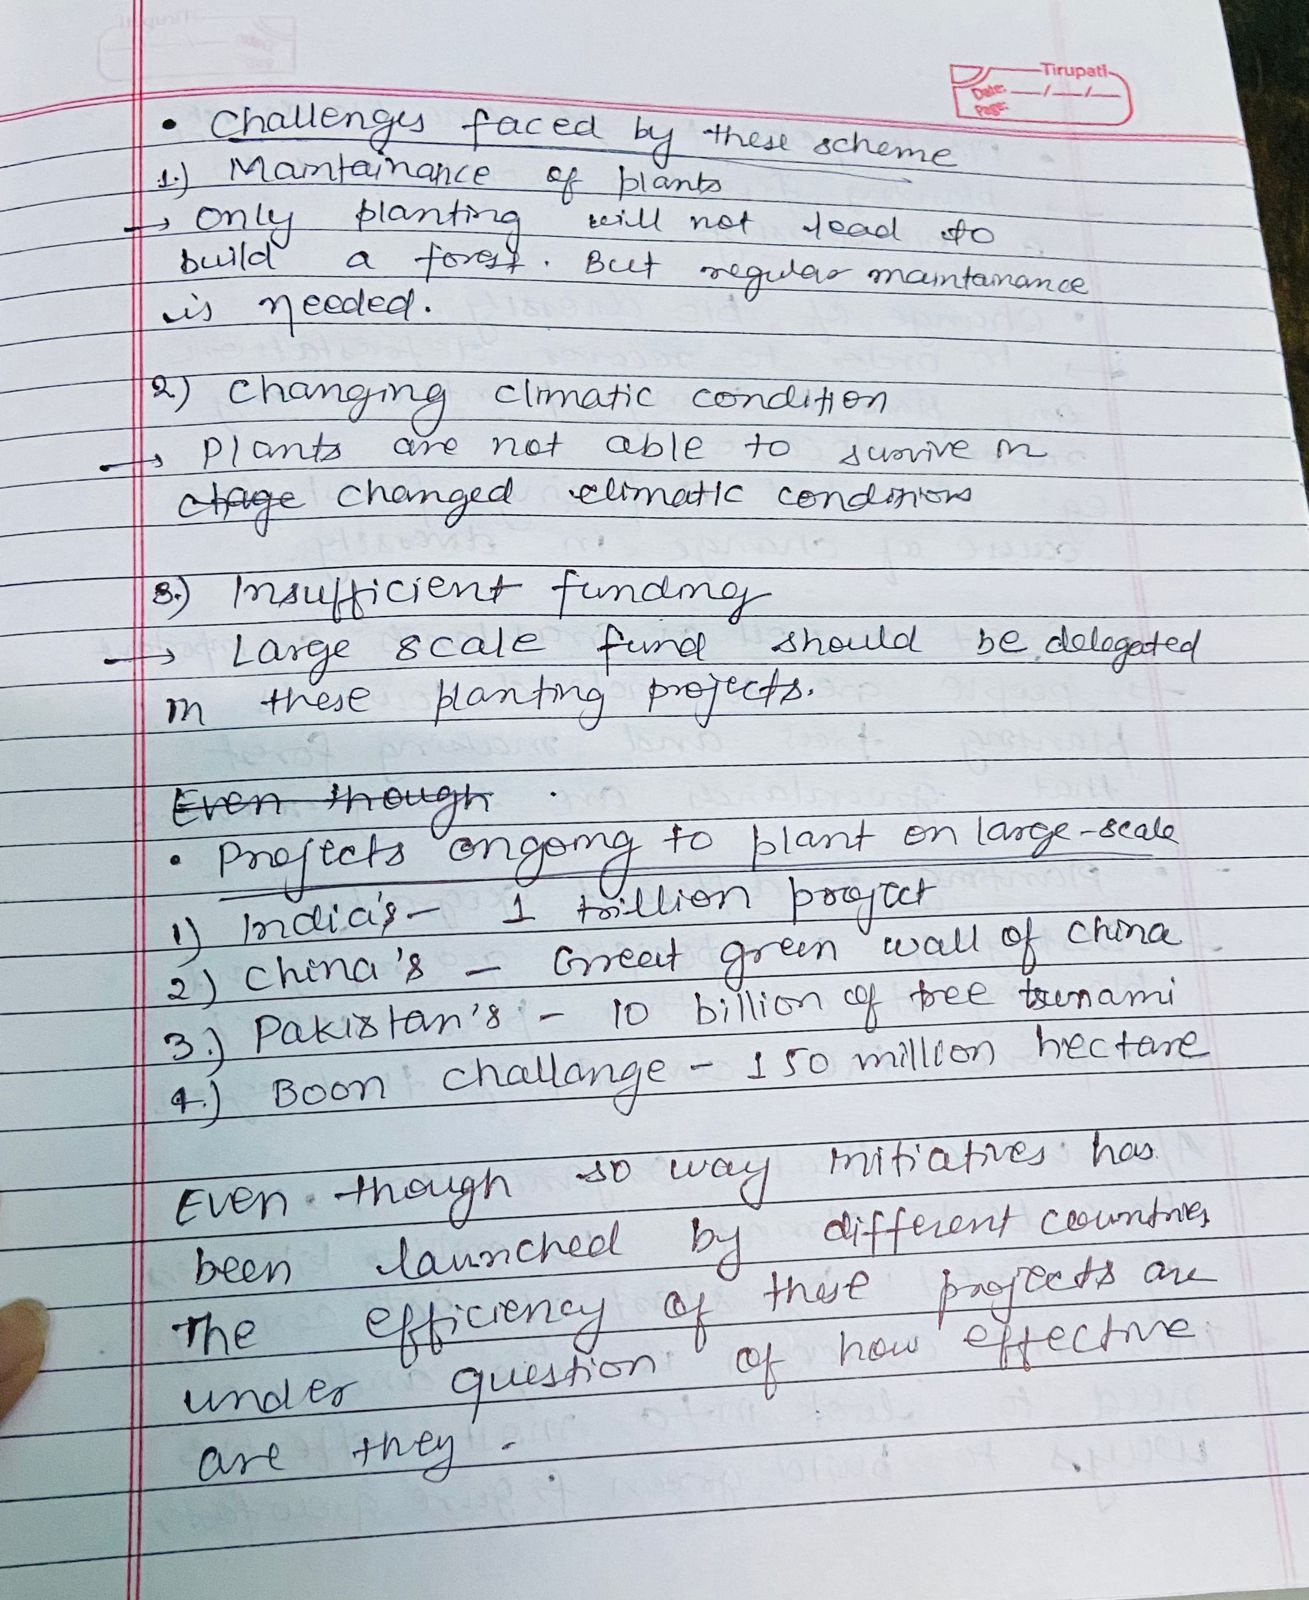 Tirupati
Date: __/__/__
Page:
• Challenges faced by these scheme
1.) Maintainance of plants
→ Only planting will not lead to
build a forest. But regular maintainance
is needed.
2) Changing climatic condition
→ Plants are not able to survive in
ctage changed climatic conditions
3.) Insufficient funding
→ Large scale fund should be delegated
in these planting projects.
Even though
• Projects ongoing to plant on large-scale
1) India's – 1 trillion project
2) China's – Great green wall of China
3.) Pakistan's – 10 billion of tree tsunami
4.) Boon challange – 150 million hectare
Even though so way initiatives has
been launched by different countries
The efficiency of these projects are
under question of how effective
are they.